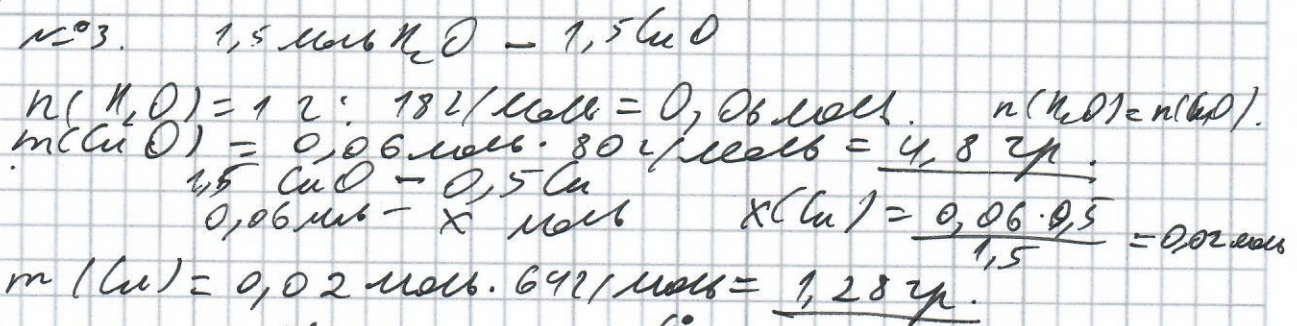 №3. 1,5 моль H₂O – 1,5 CuO
n(H₂O) = 1 г : 18 г/моль = 0,06 моль. n(H₂O) = n(CuO).
m(CuO) = 0,06 моль · 80 г/моль = 4,8 гр.
1,5 CuO – 0,5 Cu
0,06 мль – x моль x(Cu) = 0,06 · 0,5 / 1,5 = 0,02 моль
m (Cu) = 0,02 моль · 64 г/моль = 1,28 гр.